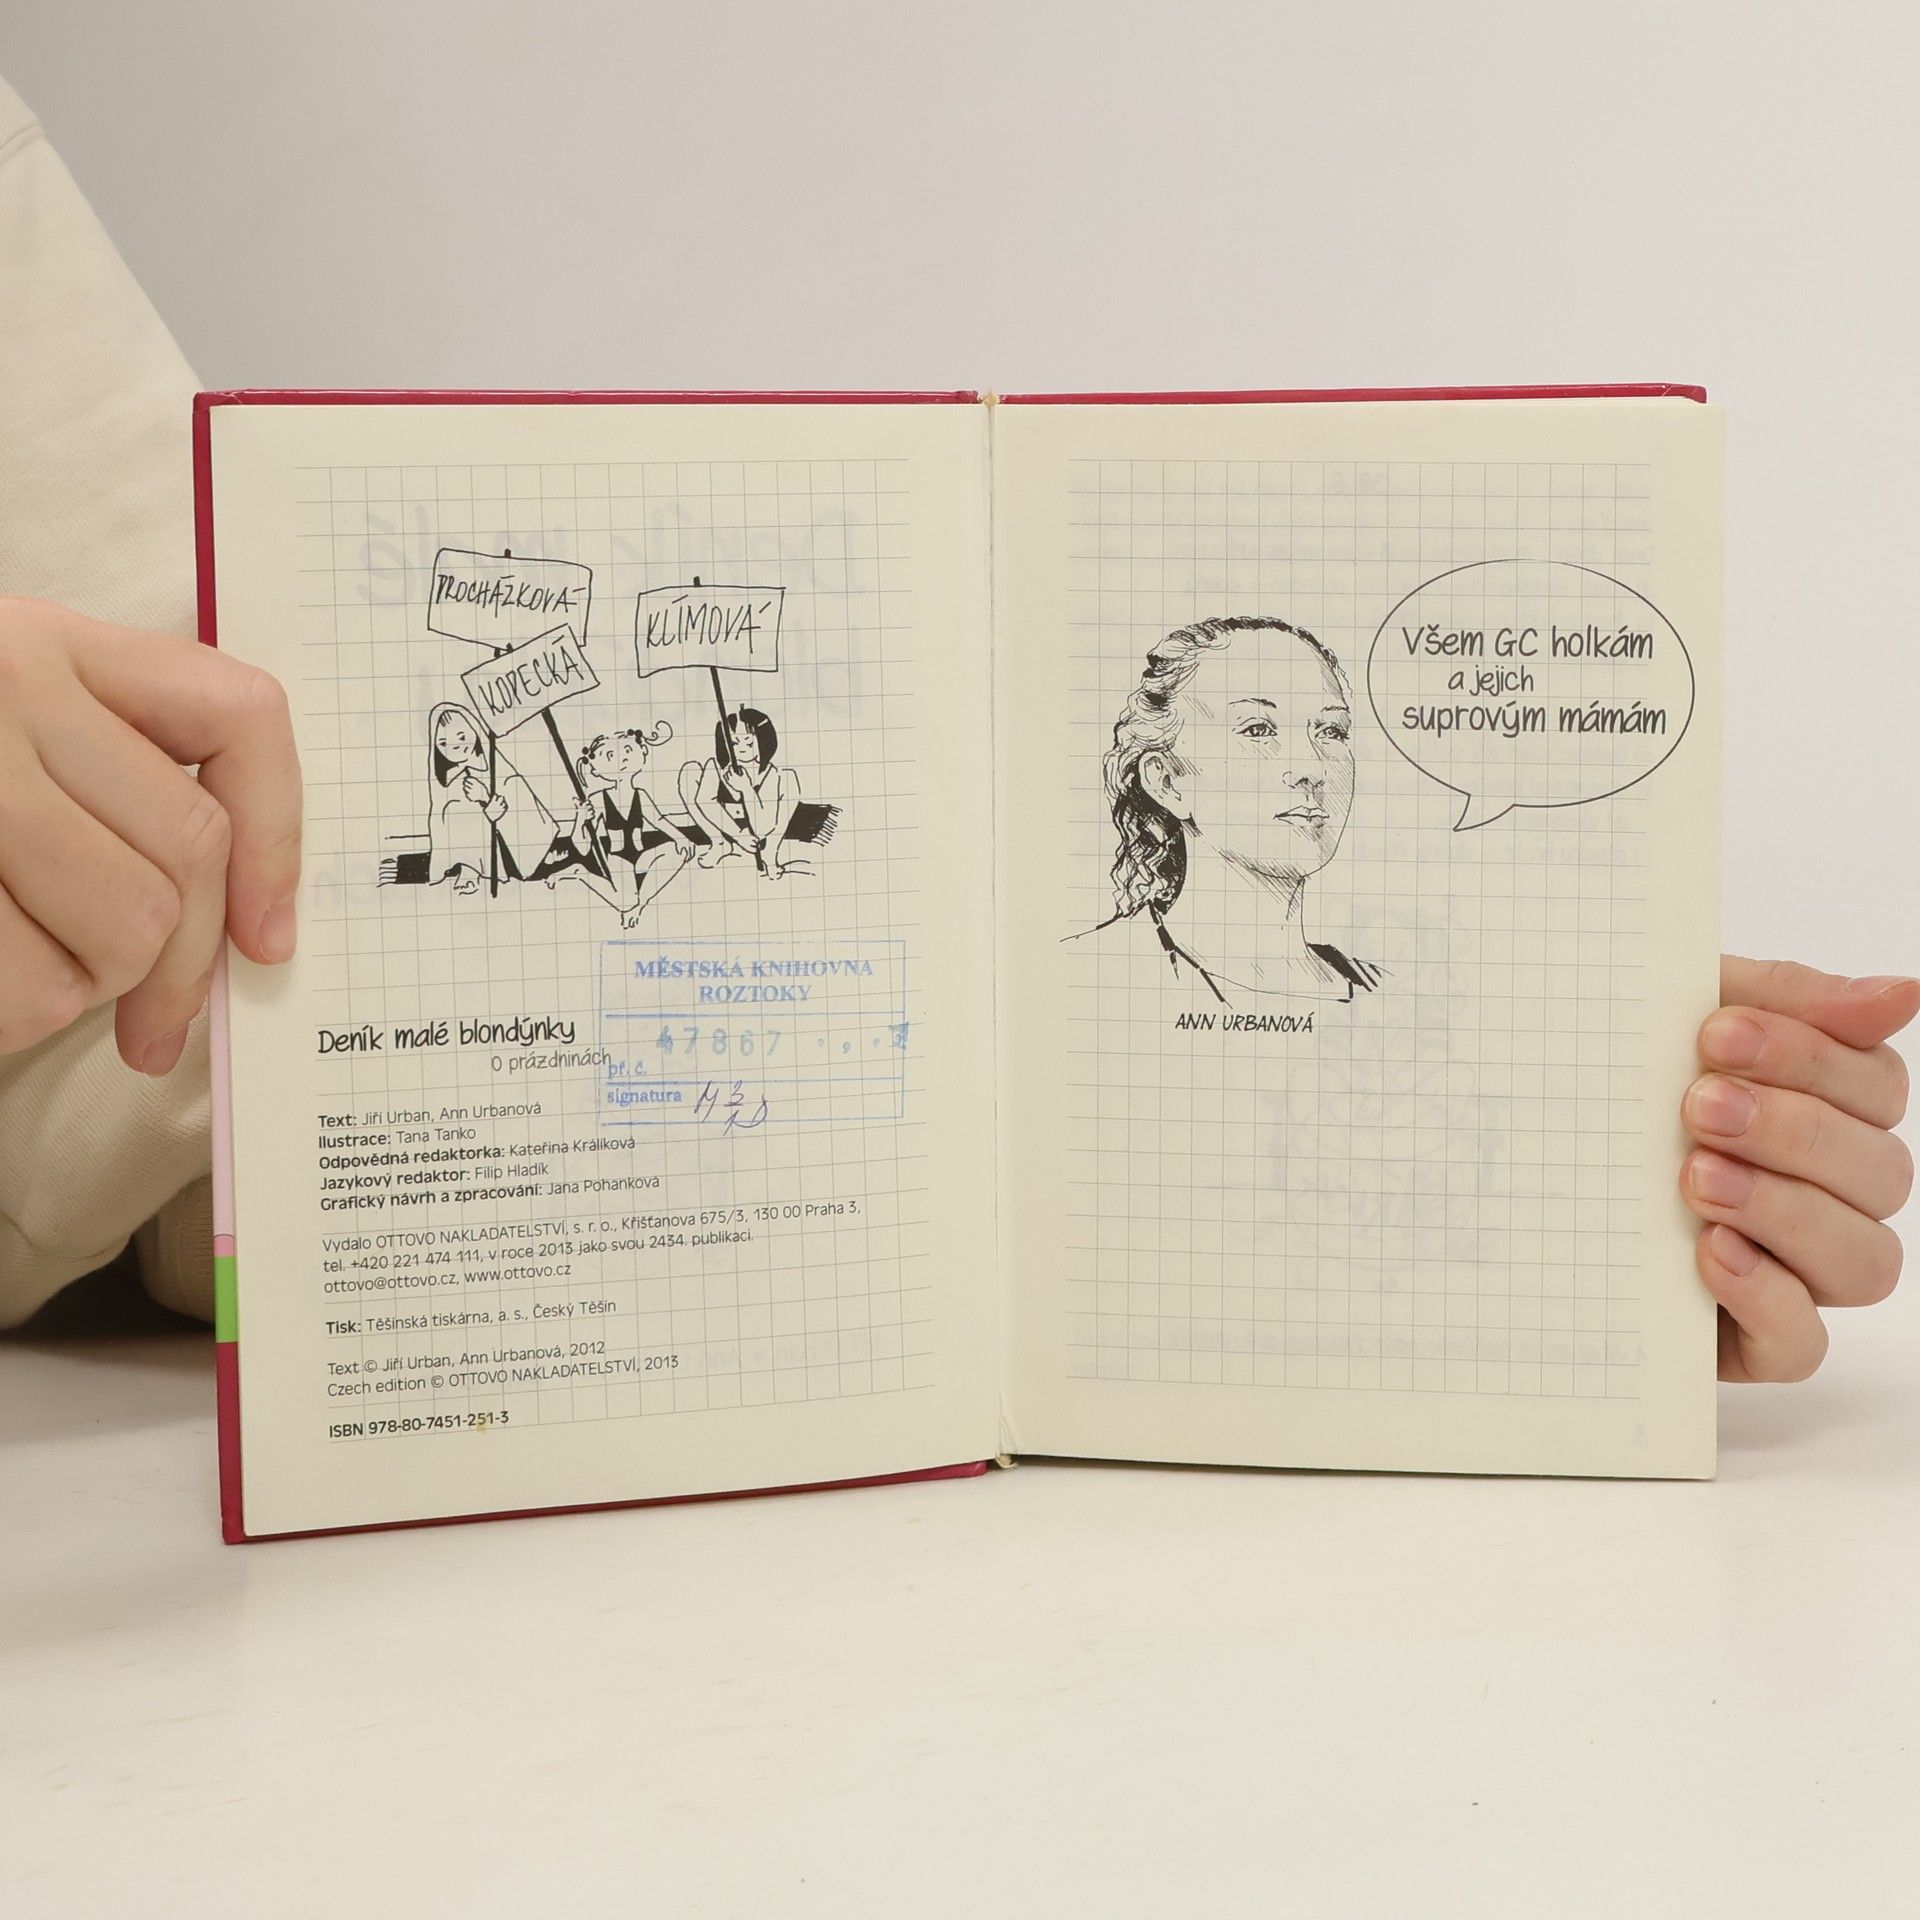 PROCHÁZKOVÁ
KOPECKÁ
KLÍMOVÁ
MĚSTSKÁ KNIHOVNA
ROZTOKY
47867
př. č.
signatura
Deník malé blondýnky
O prázdninách
Text: Jiří Urban, Ann Urbanová
Ilustrace: Tana Tanko
Odpovědná redaktorka: Kateřina Králíková
Jazykový redaktor: Filip Hladík
Grafický návrh a zpracování: Jana Pohanková
Vydalo OTTOVO NAKLADATELSTVÍ, s. r. o., Křišťanova 675/3, 130 00 Praha 3,
tel. +420 221 474 111, v roce 2013 jako svou 2434. publikaci.
ottovo@ottovo.cz, www.ottovo.cz
Tisk: Těšínská tiskárna, a. s., Český Těšín
Text © Jiří Urban, Ann Urbanová, 2012
Czech edition © OTTOVO NAKLADATELSTVÍ, 2013
ISBN 978-80-7451-251-3
Všem GC holkám
a jejich
suprovým mámám
ANN URBANOVÁ